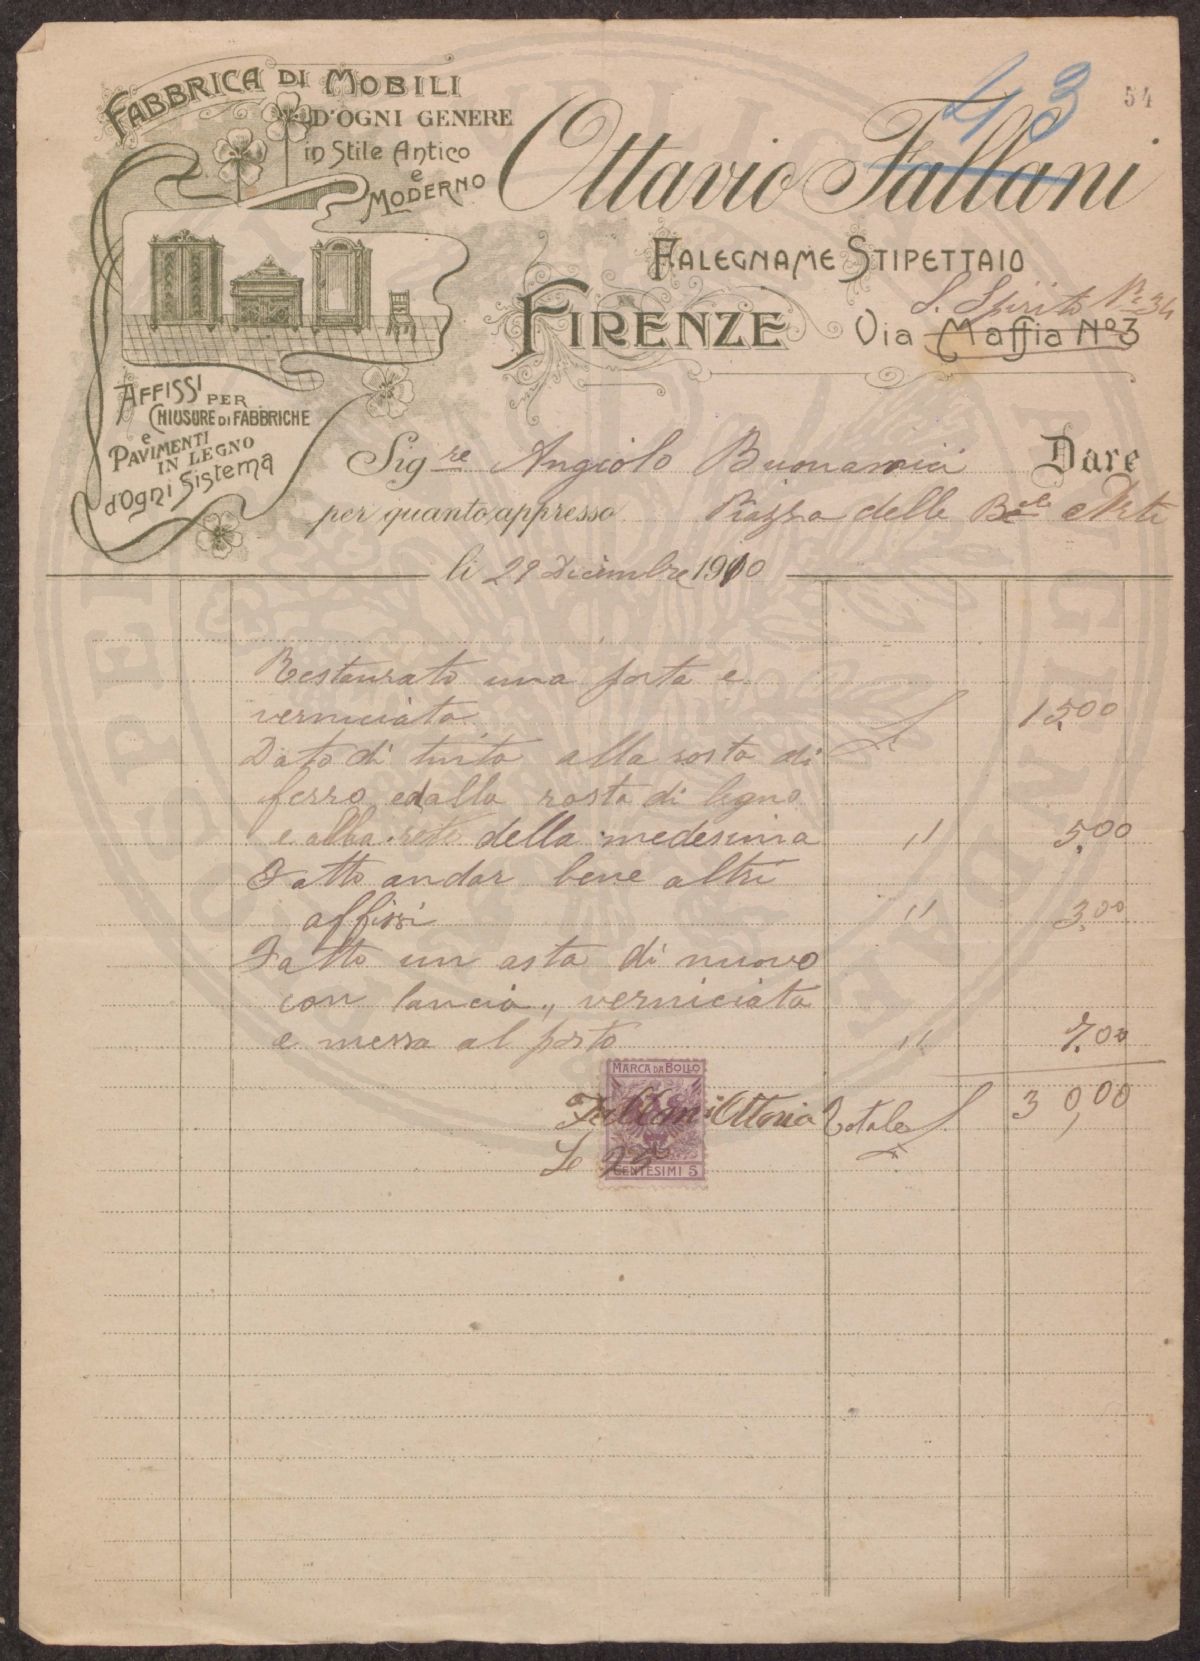 43
54
FABBRICA DI MOBILI
D'OGNI GENERE
in Stile Antico
e
MODERNO
Ottavio Fallani
FALEGNAME STIPETTAIO
S. Spirito No 34
FIRENZE Via Maffia No 3
AFFISSI PER
CHIUSURE DI FABBRICHE
e
PAVIMENTI
IN LEGNO
d'Ogni Sistema
Sigre Angiolo Buonamici Dare
per quanto appresso Piazza delle Belle Arti
li 29 Dicembre 1910
Restaurato una porta e
verniciata £ 15,00
Dato di tinta alla rosta di
ferro, ed alla rosta di legno
e alla rete della medesima " 5,00
Fatto andar bene altri
affissi " 3,00
Fatto un asta di nuovo
con lancia, verniciata
e messa al posto " 7,00
MARCA DA BOLLO
Fallani Ottavio Totale £ 30,00
CENTESIMI 5